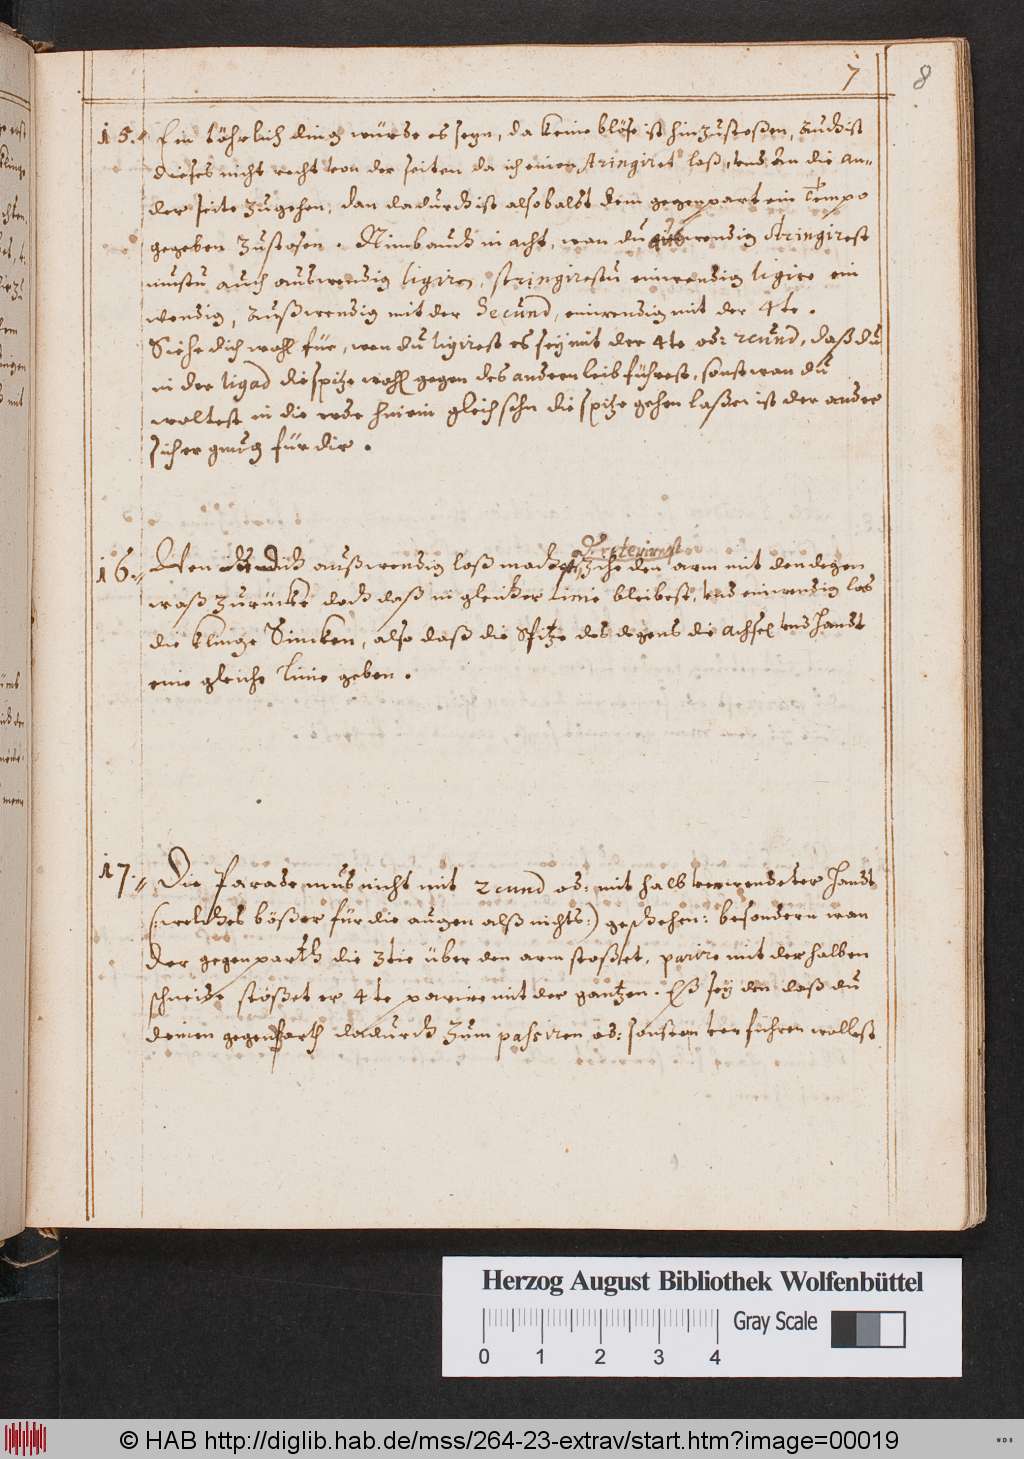 7
8
15. Ein töhrlich ding würde es seyn, da keine blöse ist hin zustoßen, Auch ist
dieses nicht recht von der seiten da ich einen stringiret laß, und an die an-
der seite zugehen, dan dadurch ist alsobaldt dem gegenpart ein Tempo
gegeben zustosen. Nimb auch in acht, wan du auswendig stringirest
mustu auch auswendig ligiren, stringirestu einwendig ligire ein
wendig, Außwendig mit der Secund, einwendig mit der 4te.
Siehe dich wohl für, wen du ligirest es sey mit der 4te od: 2cund, daß du
in der ligad die spitze wohl gegen des andern leib führest, sonst wan du
woltest in die erde hinein gleichsahm die spitze gehen laßen ist der ander
sicher genug für dir.
16. Wen du dich außwendig loß machst ziehe den arm mit den degen
waß zurücke doch daß in gleicher linie bleibest, und einwendig las
die klinge Sincken, also daß die Spitze des degens die achsel und handt
eine gleiche linie geben.
17. Die Parade mus nicht mit 2cund od: mit halb verwendeter handt
(:welches bößer für die augen alß nichts:) geschehen: besondern wan
der gegenparth die 3tie über den arm stoßet, parire mit der halben
schneide stößet er 4te parire mit der gantzen. Eß sey den daß du
deinen gegenparth dadurch zum passiren od: sonsten verführen wollest
Herzog August Bibliothek Wolfenbüttel
0 1 2 3 4
Gray Scale
© HAB http://diglib.hab.de/mss/264-23-extrav/start.htm?image=00019